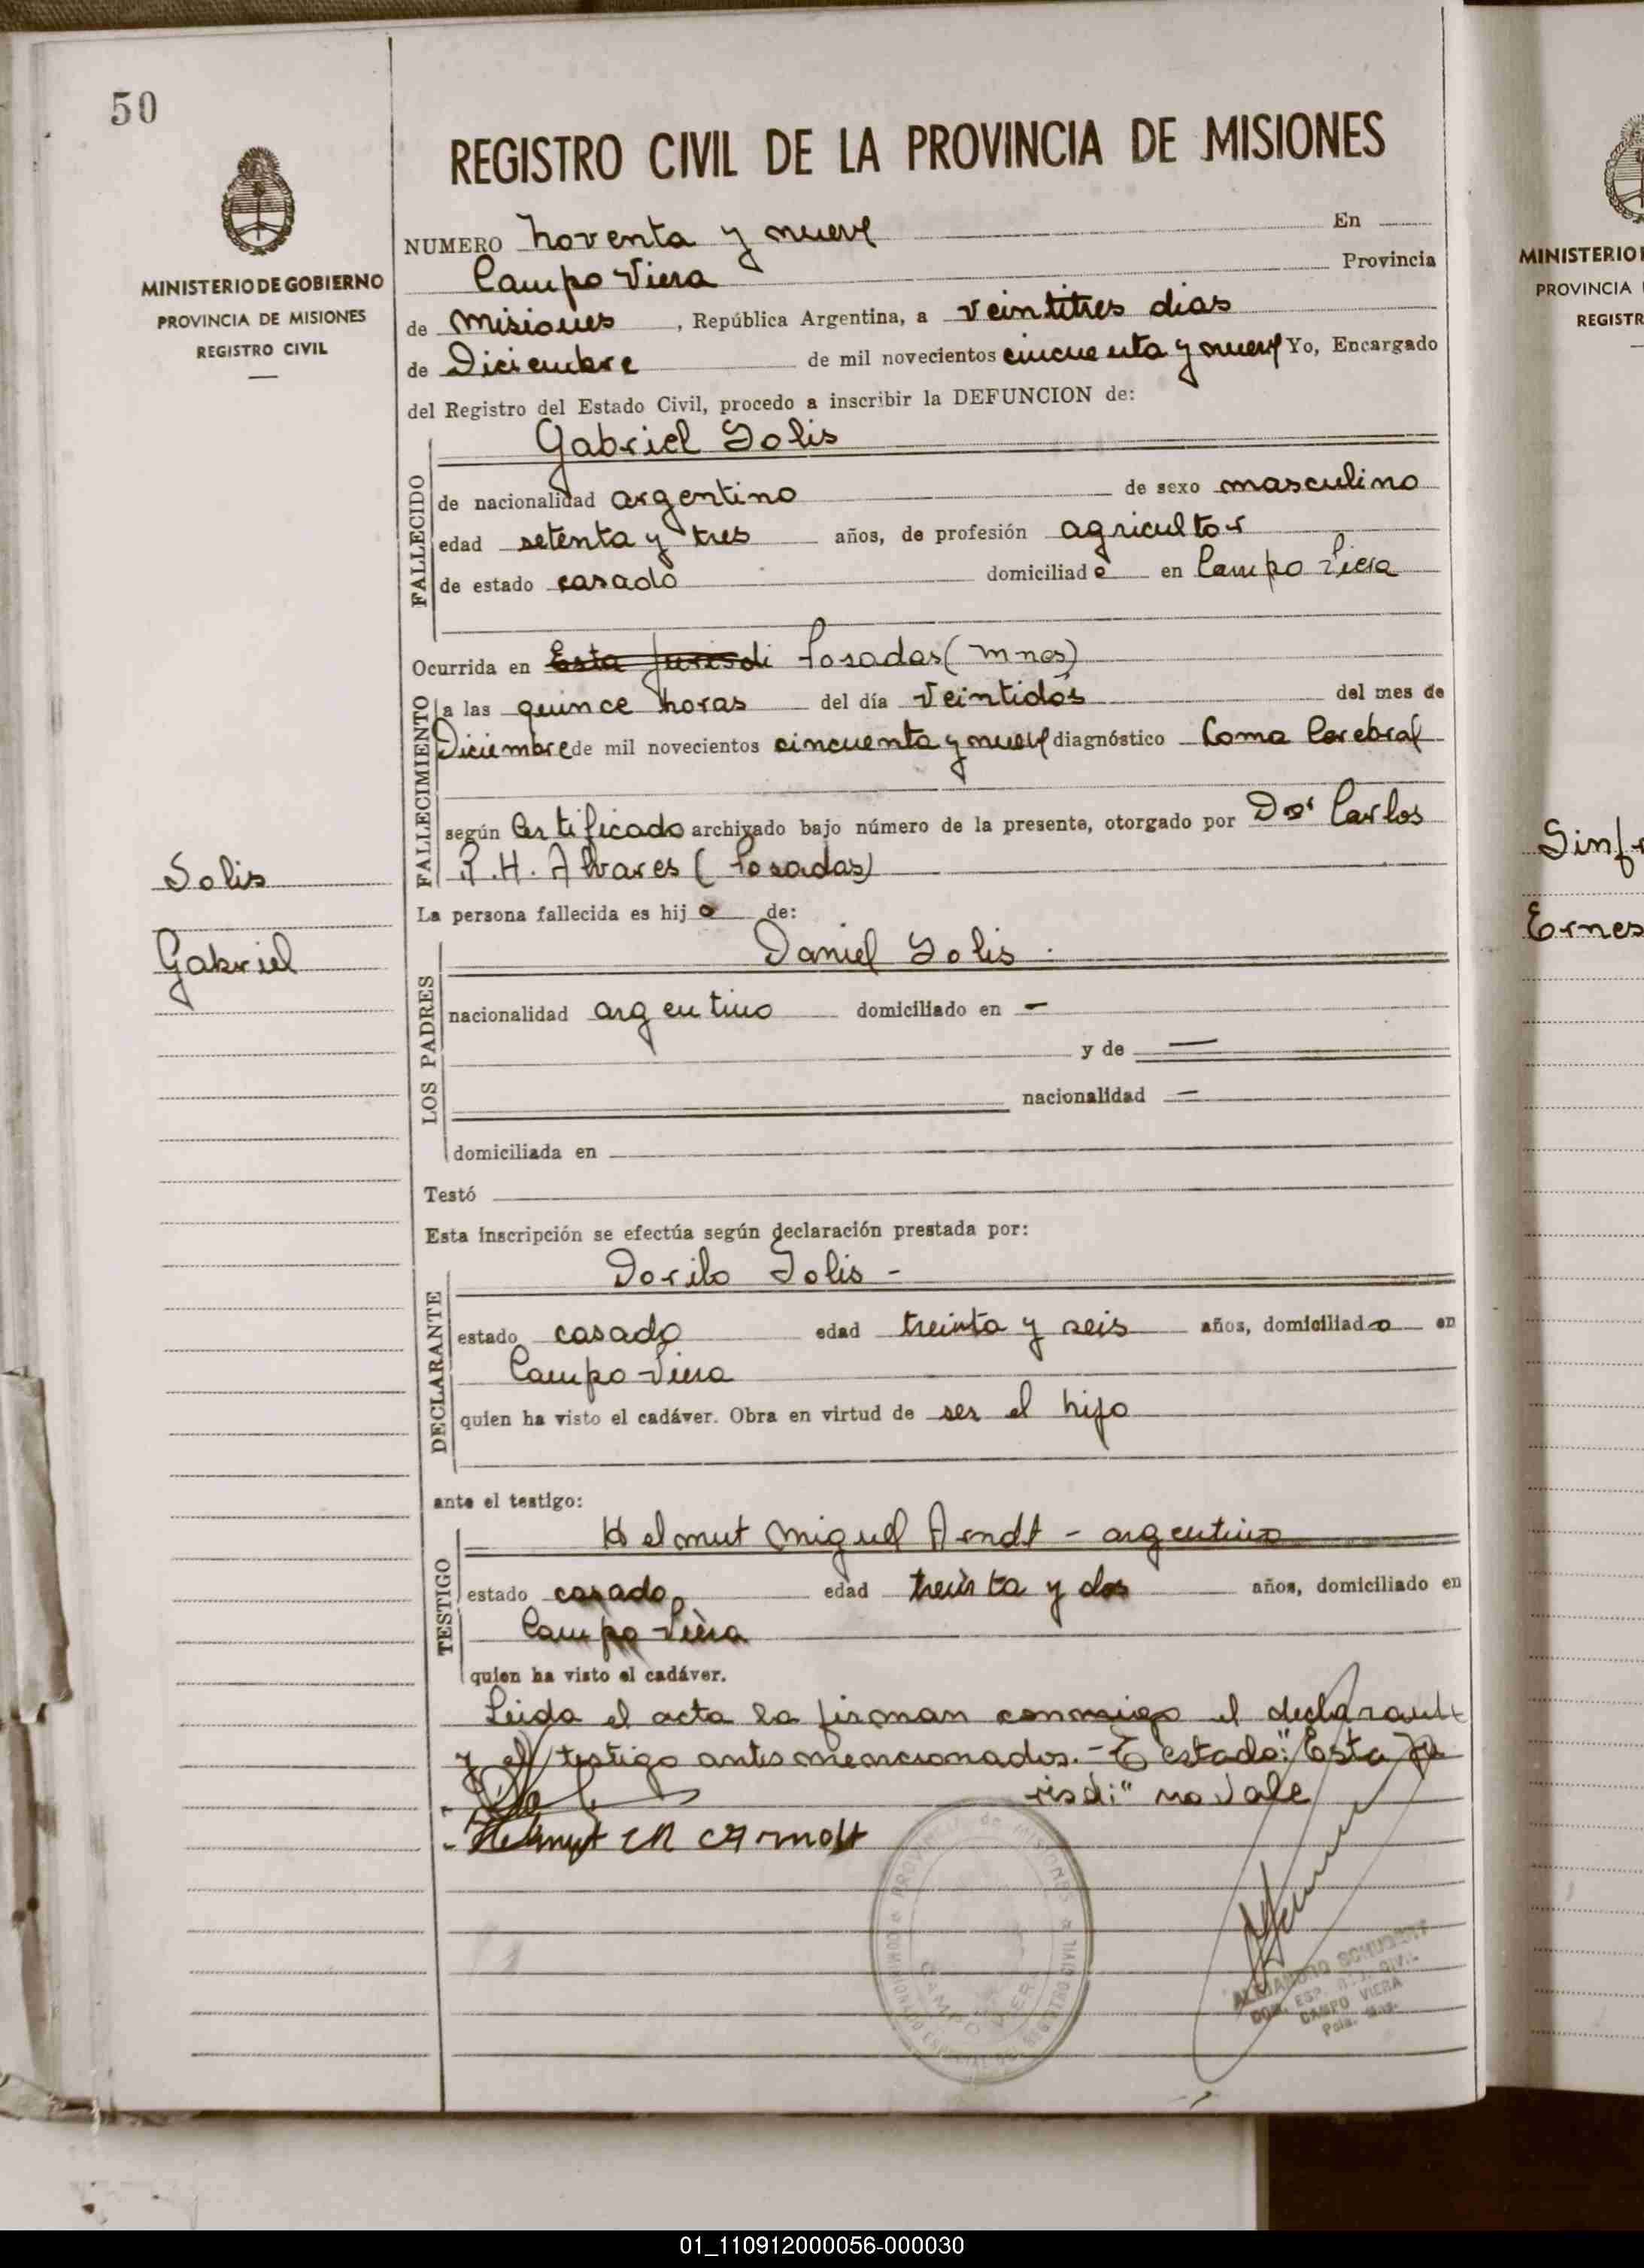 50
MINISTERIO DE GOBIERNO
PROVINCIA DE MISIONES
REGISTRO CIVIL
REGISTRO CIVIL DE LA PROVINCIA DE MISIONES
NUMERO Noventa y nueve En
Campo Viera Provincia
de Misiones, República Argentina, a veintitres dias
de Diciembre de mil novecientos cincuenta y nueve Yo, Encargado
del Registro del Estado Civil, procedo a inscribir la DEFUNCION de:
Gabriel Solis
FALLECIDO
de nacionalidad argentino de sexo masculino
edad setenta y tres años, de profesión agricultor
de estado casado domiciliado en Campo Viera
Ocurrida en Esta jurisdi Posadas (Mnes)
FALLECIMIENTO
a las quince horas del día veintidós del mes de
Diciembre de mil novecientos cincuenta y nueve diagnóstico Coma Cerebral
según Certificado archivado bajo número de la presente, otorgado por Dor Carlos
P. H. Alvares (Posadas)
Solis
Gabriel
La persona fallecida es hijo de:
LOS PADRES
Daniel Solis
nacionalidad argentino domiciliado en —
y de —
nacionalidad —
domiciliada en
Testó
Esta inscripción se efectúa según declaración prestada por:
DECLARANTE
Dorilo Solis -
estado casado edad treinta y seis años, domiciliado en
Campo Viera
quien ha visto el cadáver. Obra en virtud de ser el hijo
ante el testigo:
TESTIGO
Helmut Miguel Arndt - argentino
estado casado edad treinta y dos años, domiciliado en
Campo Viera
quien ha visto el cadáver.
Leida el acta la firman conmigo el declarante
y el testigo antes mencionados.- E estado: "Esta ju
risdi" no vale
Helmut M Arndt
PROVINCIA de MISIONES
COMISIONADO ESPECIAL DEL REGISTRO CIVIL
CAMPO VIERA
ALEJANDRO SCHUBERT
COM. ESP. R. CIVIL
CAMPO VIERA
Pcia. Mns.
MINISTERIO
PROVINCIA
REGISTR
Sinf
Ernes
01_110912000056-000030